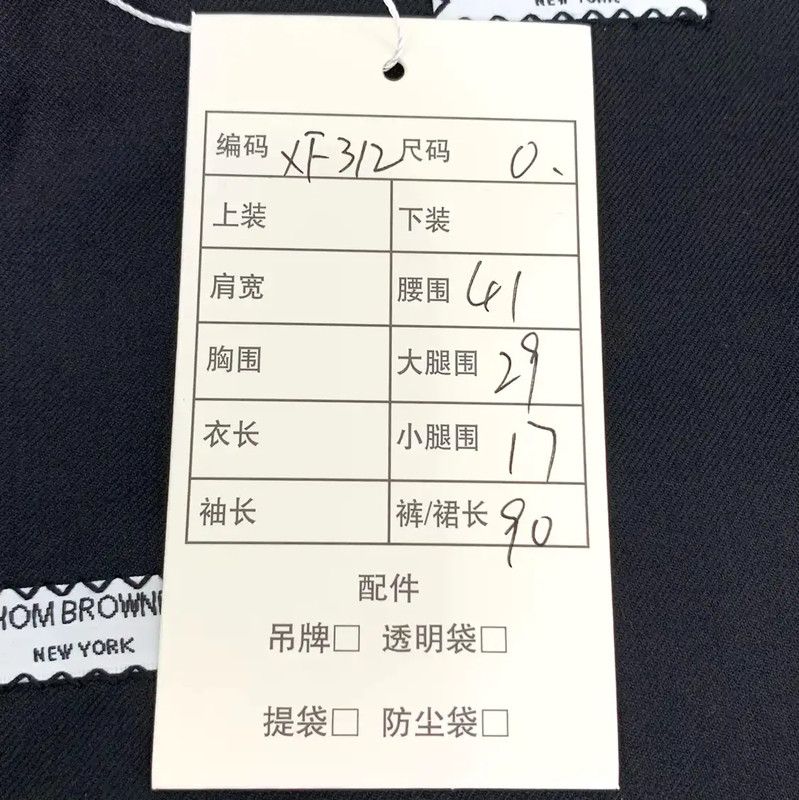 NEW YORK
编码 XF312 尺码 0.
上装 下装
肩宽 腰围 41
胸围 大腿围 29
衣长 小腿围 17
袖长 裤/裙长 90
配件
吊牌□ 透明袋□
提袋□ 防尘袋□
HOM BROWNE
NEW YORK